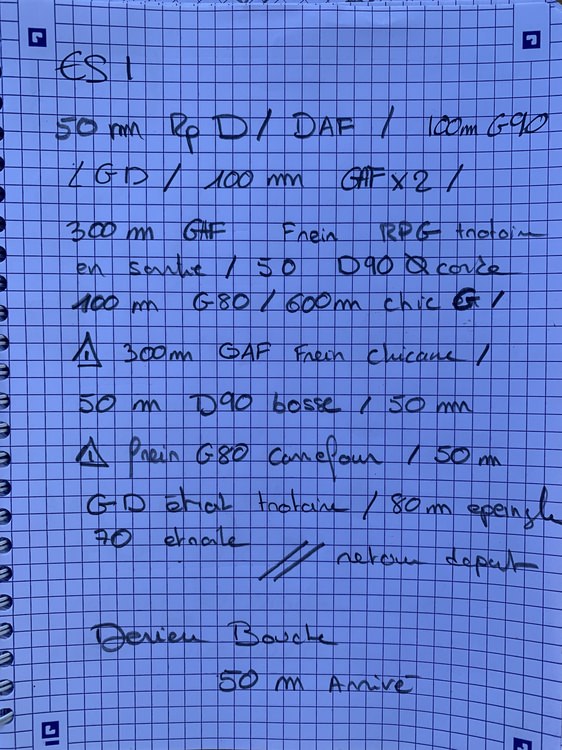 ES 1
50 m Rp D / DAF / 100m G90
/ GD / 100 m GAF x2 /
300 m GAF Frein RPG trotoir
en sortie / 50 D90 corde
100 m G80 / 600m chic G /
⚠ 300m GAF Frein chicane /
50 m D90 bosse / 50 m
⚠ Frein G80 Carrefour / 50 m
GD trotoire / 80m epeingle
70 //
retour depart
Dernier Boucle
50 m Arrivé